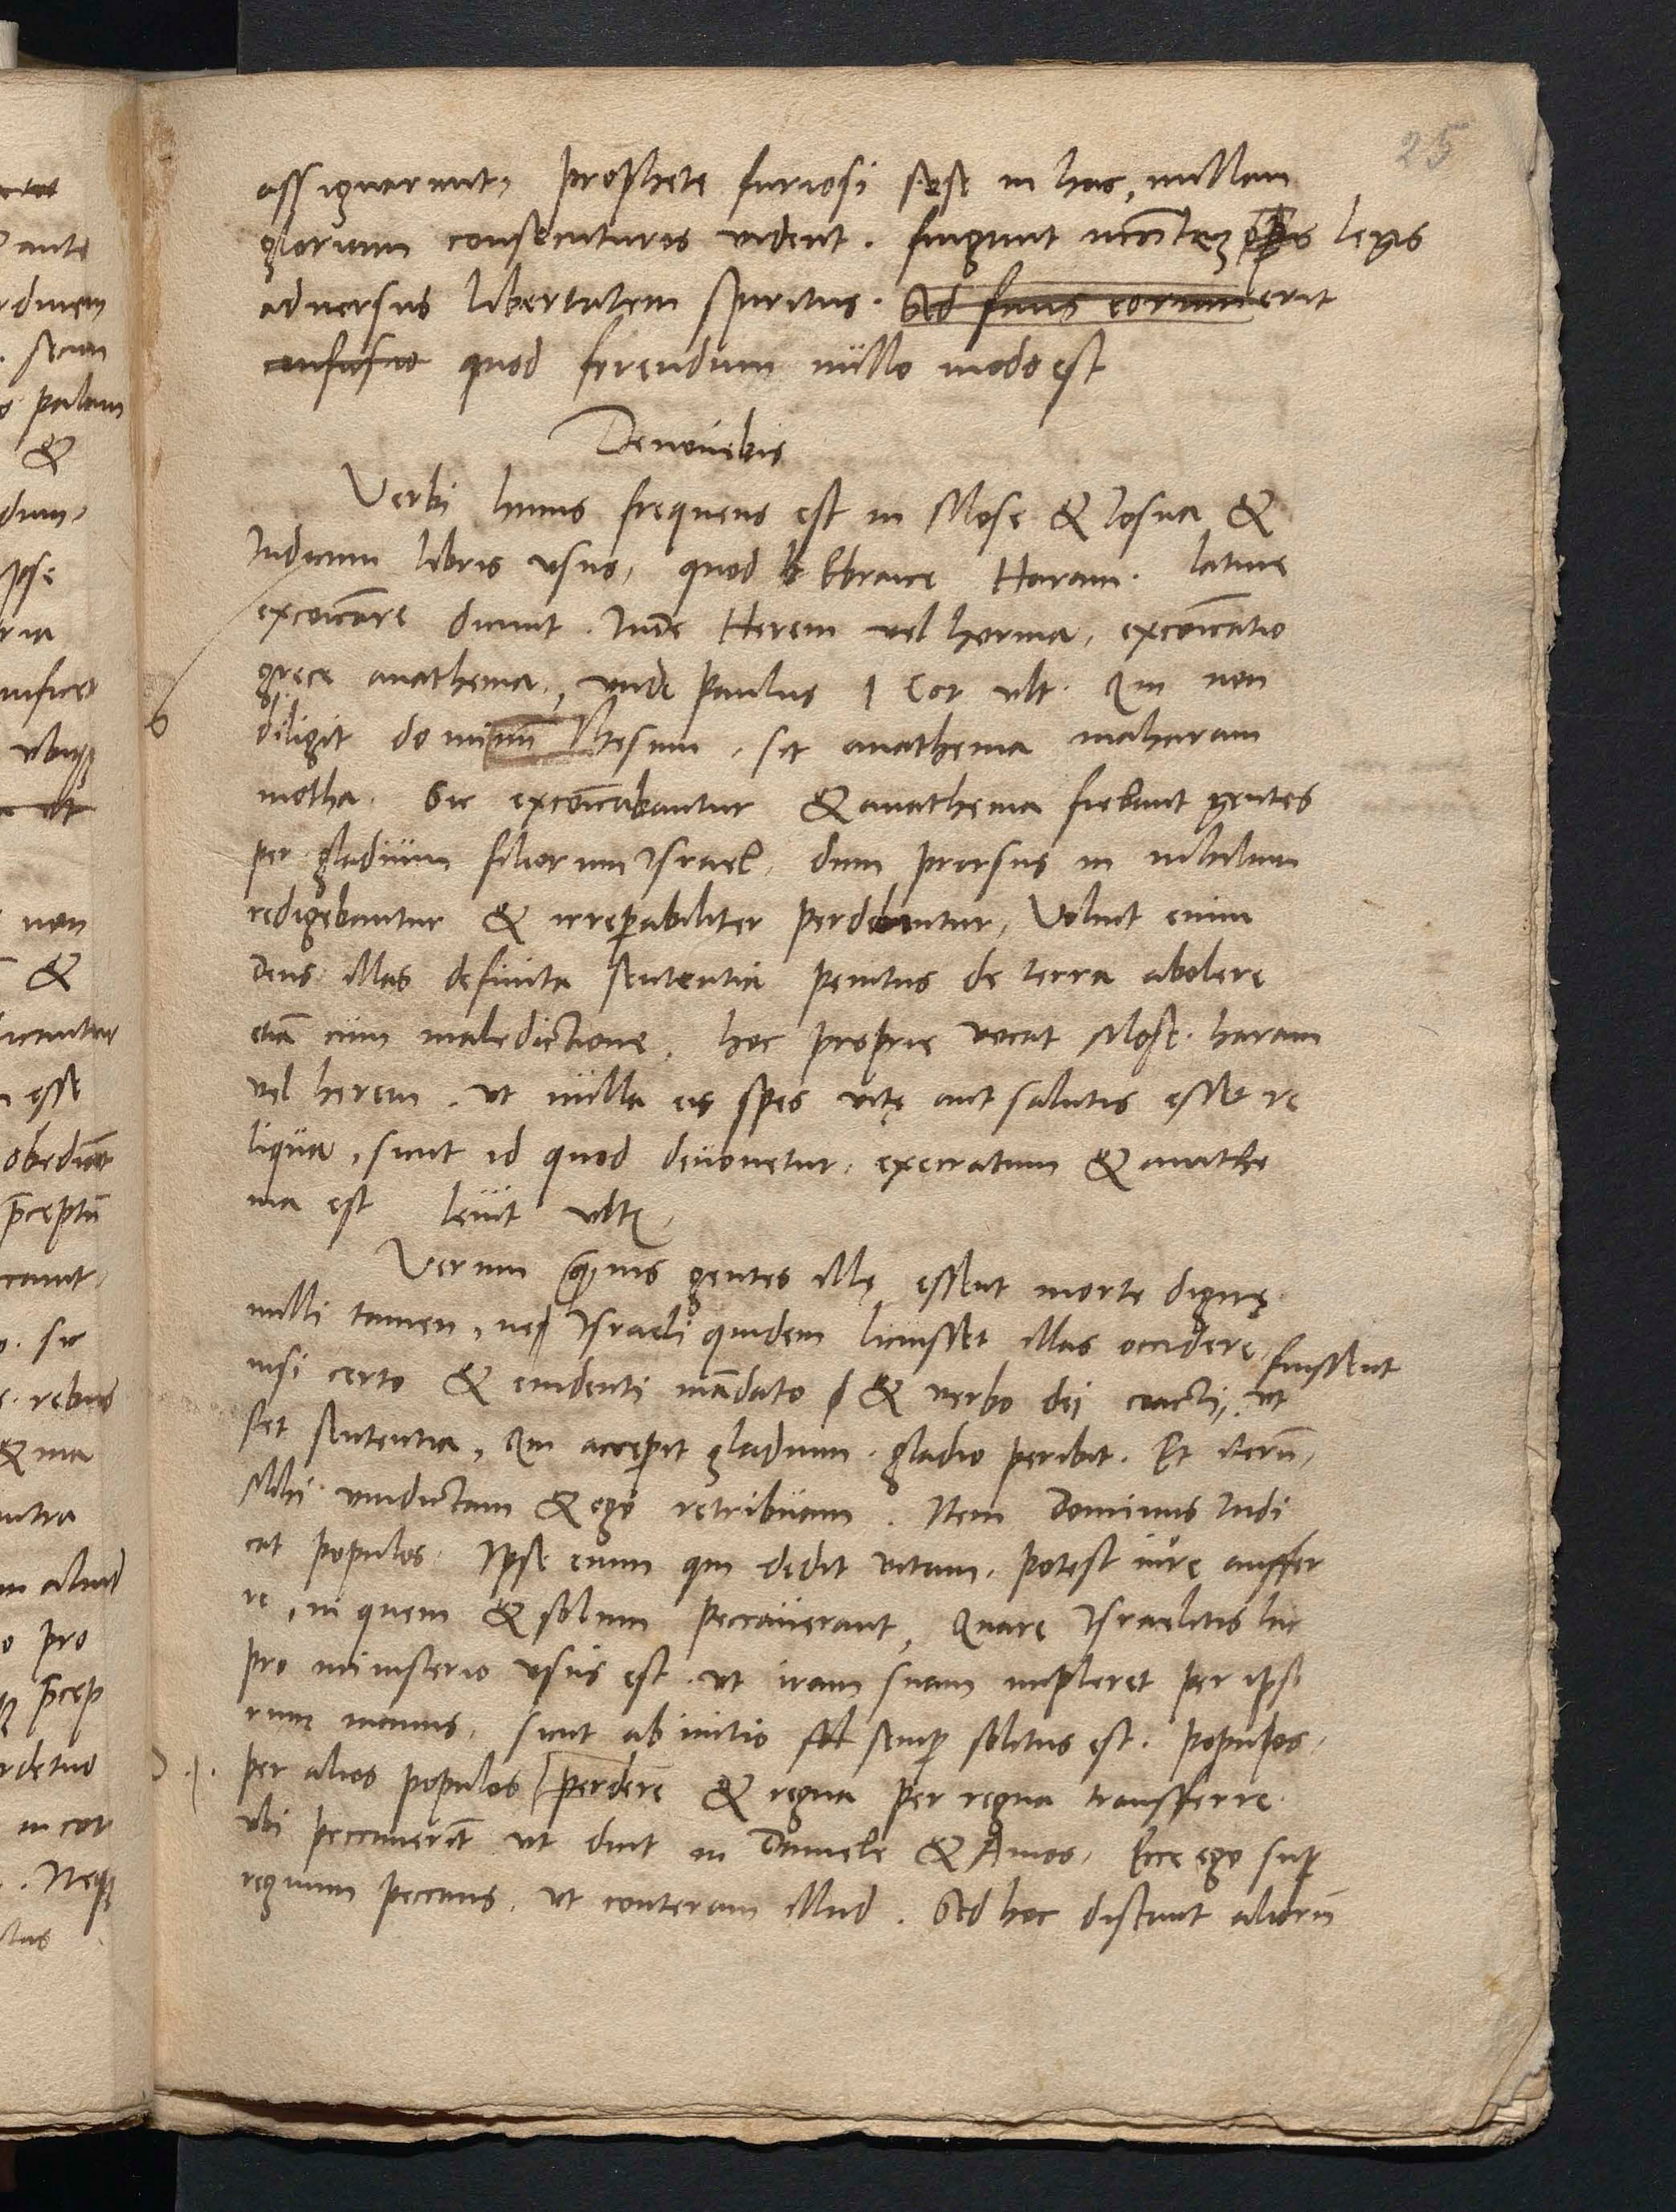 25
assignarunt, prophete furiosi sese in hac, nullam
gloriam consecuturos vident. fingunt legis
adversus libertatem spiritus. Sed finis eorum erit
confusio quod ferendum nullo modo est
Devovebis
Verbi huius frequens est in Mose & Iosua &
Iudicum libris usus, quod Ebraice Haram. latine
excoicare dicunt. Inde Herem vel horma, excoicatio
grece anathema, unde Paulus 1 Cor ult. Qui non
diligit dominum Ihesum, sit anathema maharam
motha. Sic excoicabantur & anathema fiebant gentes
per gladium filiorum Israel, dum prorsus in nihilum
redigebantur & irreparabiliter perdebantur, Voluit enim
Deus illas definita sententia penitus de terra abolere
etiam cum maledictione. hoc proprie vocat Mose haram
vel herem. ut nulla eis spes vitę aut salutis esset re
liqua, sicut id quod devovetur, execratum & anathe
ma est Levit ult.
Verum quamvis gentes illę essent morte dignę
nulli tamen, neque Israeli quidem licuisset illas occidere,
nisi certo & evidenti mandato & verbo dei coacti, fuissent ut
stet sententia, Qui acceperit gladium, gladio peribit. Et iterum,
Mihi vindictam & ego retribuam. Item Dominus Iudi
cat populos. Ipse enim qui dedit vitam, potest iure auffer
re, in quem & solum peccaverant, Quare Israelitis hic
pro ministerio usus est. ut iram suam impleret per ipso
rum manus, sicut ab initio semper solitus est. populos,
per alios populos perdere & regna per regna transferre
ubi peccaverint ut dicit in Daniele & Amos, Ecce ego super
regnum peccans, ut conteram illud. Sed hoc distant aliorum